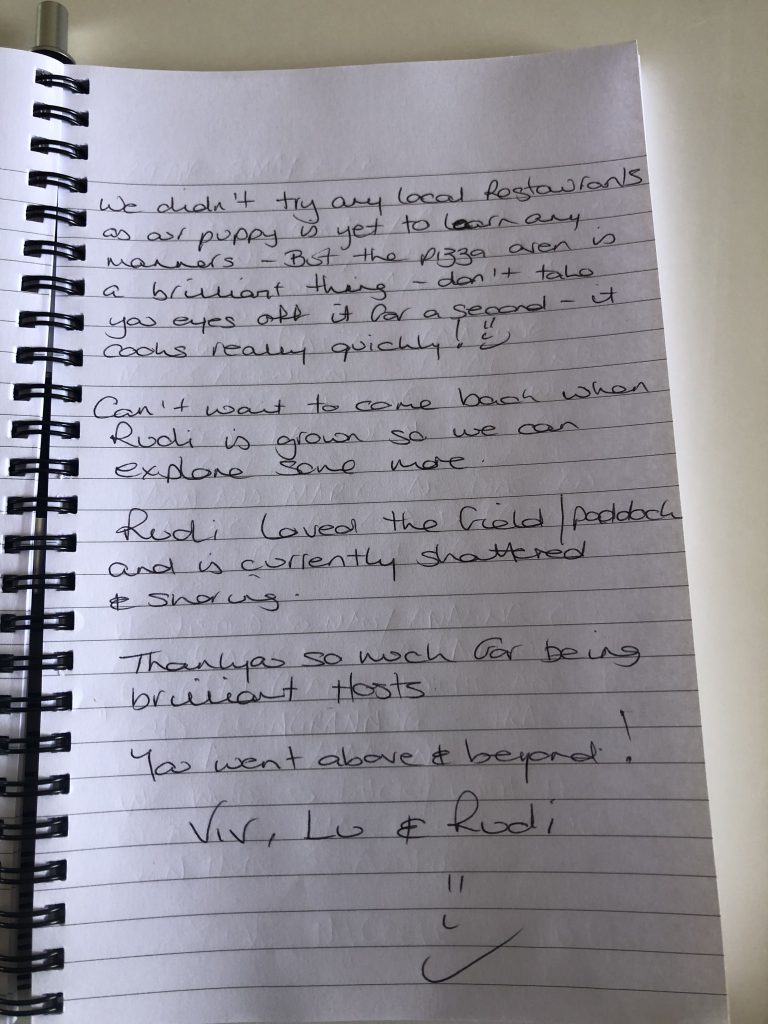 We didn't try any local Restaurants
as our puppy is yet to learn any
manners - But the pizza oven is
a brilliant thing - don't take
you eyes off it for a second - it
cooks really quickly!
Can't want to come back when
Rudi is grown so we can
explore some more.
Rudi loved the field/paddock
and is currently shattered
& snoring.
Thankyou so much for being
brilliant Hosts
You went above & beyond!
Viv, Lu & Rudi